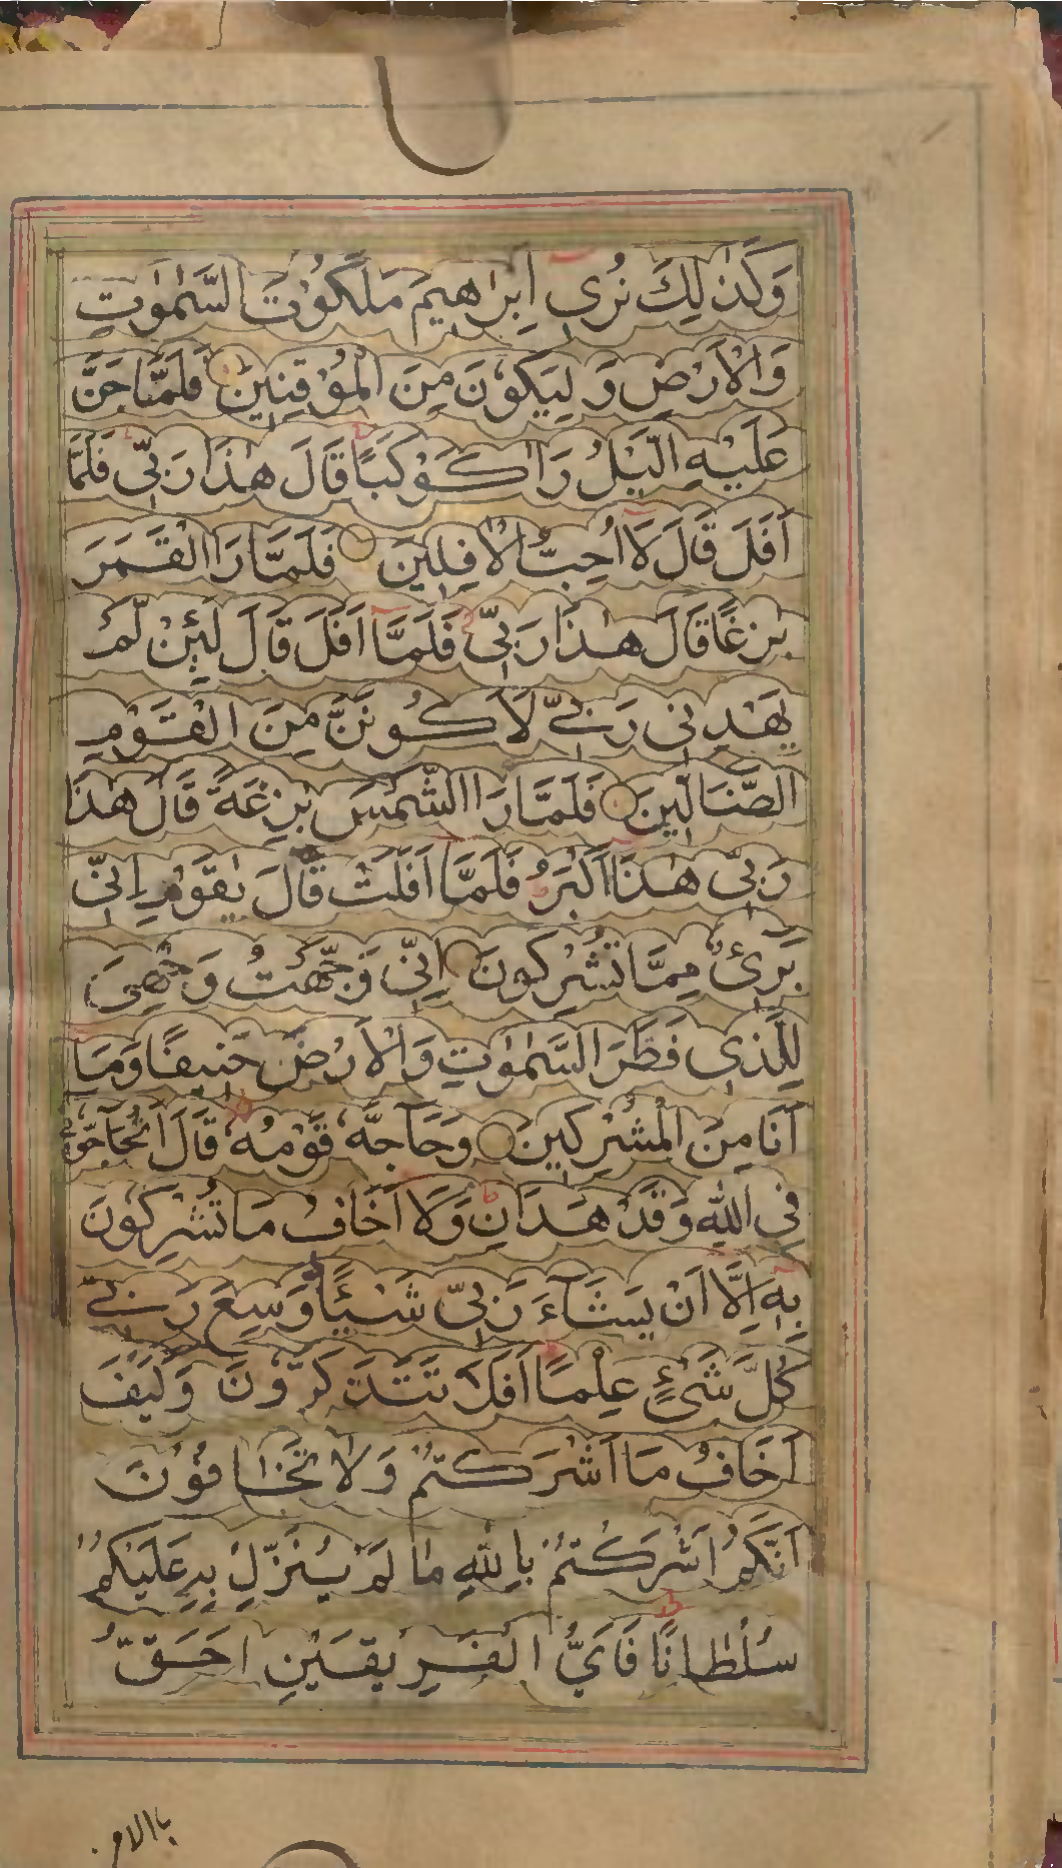 وَكَذٰلِكَ نُرِى اِبْرٰاهِيمَ مَلَكُوْتَ السَّمٰوٰتِ
وَالْاَرْضِ وَ لِيَكُوْنَ مِنَ الْمُوْقِنِيْنَ فَلَمَّا جَنَّ
عَلَيْهِ الَّيْلُ رَاٰ كَوْكَبًا قَالَ هٰذَا رَبِّى فَلَمَّا
اَفَلَ قَالَ لَا اُحِبُّ الْاٰفِلِيْنَ فَلَمَّا رَا الْقَمَرَ
بَزِغًا قَالَ هٰذَا رَبِّى فَلَمَّا اَفَلَ قَالَ لَئِنْ لَّمْ
يَهْدِنِى رَبِّى لَاَكُوْنَنَّ مِنَ الْقَوْمِ
الضَّالِّيْنَ فَلَمَّا رَا الشَّمْسَ بَزِغَةً قَالَ هٰذَا
رَبِّى هٰذَا اَكْبَرُ فَلَمَّا اَفَلَتْ قَالَ يٰقَوْمِ اِنِّى
بَرِىْءٌ مِمَّا تُشْرِكُونَ اِنِّى وَجَّهْتُ وَجْهِىَ
لِلَّذِى فَطَرَ السَّمٰوٰتِ وَالْاَرْضَ حَنِيفًا وَمَا
اَنَا مِنَ الْمُشْرِكِيْنَ وَحَاجَّهٗ قَوْمُهٗ قَالَ اَتُحَاجُّوْنِّى
فِى اللّٰهِ وَقَدْ هَدَانِ وَلَا اَخَافُ مَا تُشْرِكُوْنَ
بِهٖ اِلَّا اَنْ يَشَآءَ رَبِّى شَيْئًا وَسِعَ رَبِّى
كُلَّ شَىْءٍ عِلْمًا اَفَلَا تَتَذَكَّرُوْنَ وَكَيْفَ
اَخَافُ مَا اَشْرَكْتُمْ وَلَا تَخَافُوْنَ
اَنَّكُمْ اَشْرَكْتُمْ بِاللّٰهِ مَا لَمْ يُنَزِّلْ بِهِ عَلَيْكُمْ
سُلْطَانًا فَاَىُّ الْفَرِيْقَيْنِ اَحَقُّ
بالامن